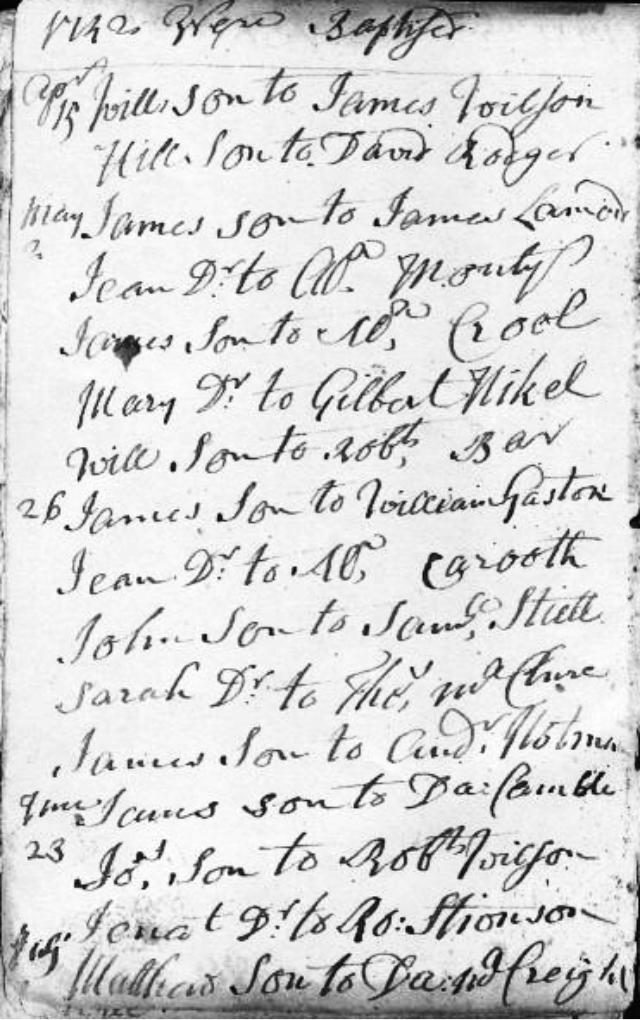 Were Baptised
Apr 15 Will. Son to James Willson
Will. Son to David Rodger
May James son to James
2 Jean Dr. to
James Son to Crool
Mary Dr. to Gilbert Nikel
Will Son to Robt, Bar
26 James Son to William Gaston
Jean Dr. to Carooth
John Son to Saml, Stiell
Sarah Dr. to Thos, Mc Clure
James Son to Andr. Holms
June James son to Da: Camble
23 Jos, Son to Robt Willson
Jenat Dr. to Ro: Stionson
July Matthew Son to Da: Mc Creight